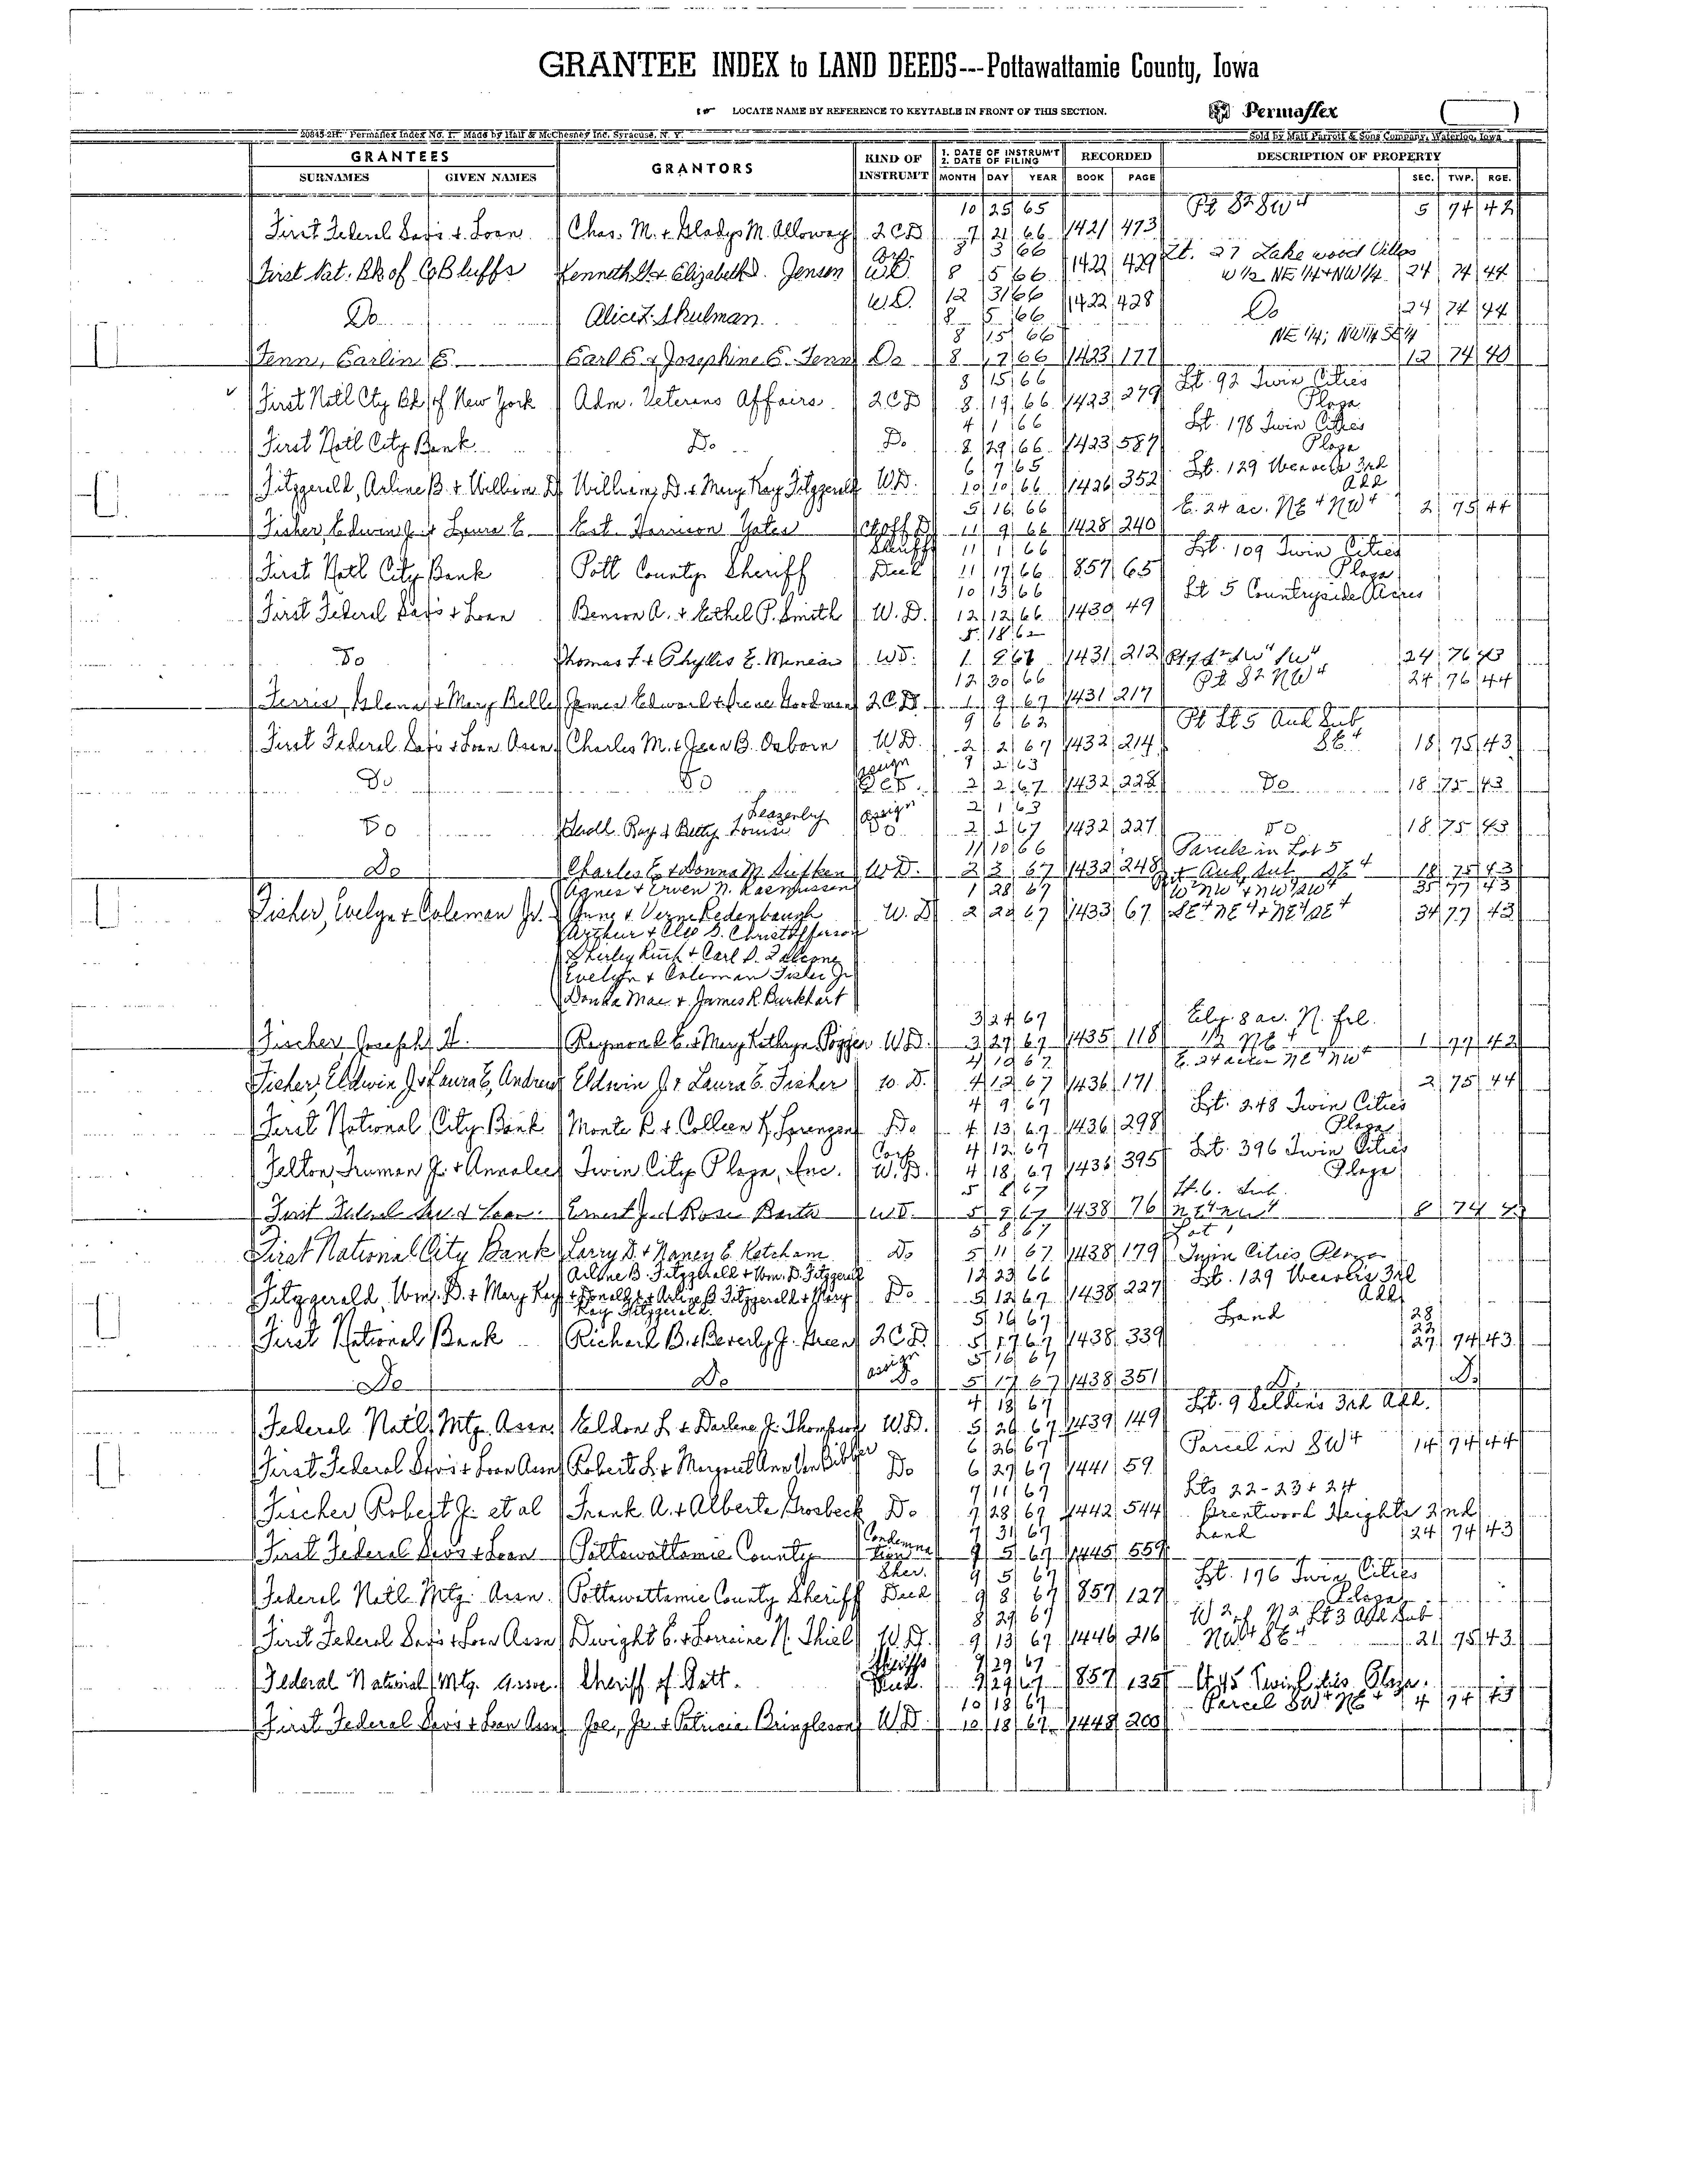 GRANTEE INDEX to LAND DEEDS---Pottawattamie County, Iowa
LOCATE NAME BY REFERENCE TO KEYTABLE IN FRONT OF THIS SECTION. Permaflex
Permaflex Index No. 1. Made by Hall & McChesney Inc. Syracuse, N. Y. Sold by Matt Parrott & Sons Company, Waterloo, Iowa
GRANTEES GRANTORS KIND OF INSTRUM'T 1. DATE OF INSTRUM'T 2. DATE OF FILING RECORDED DESCRIPTION OF PROPERTY
SURNAMES GIVEN NAMES MONTH DAY YEAR BOOK PAGE SEC. TWP. RGE.
10 25 65 Pt S2 SW4 5 74 42
First Federal Sav's & Loan Chas. M. & Gladys M. Alloway 2CD 7 21 66 1421 473
8 3 66 Lt. 27 Lakewood Villas
First Nat. Bk of Co Bluffs Kenneth & Elizabeth Jensen Corp W.D. 8 5 66 1422 429 W 1/2 NE 1/4 + NW 1/4 24 74 44
12 31 66
Do Alice Z. Shulman W.D. 8 5 66 1422 428 Do 24 74 44
8 15 66 NE 1/4; NW 1/4 SE 1/4
Fenn, Earlin E. Earl E. & Josephine E. Fenn Do 8 17 66 1423 177 12 74 40
8 15 66 Lt. 92 Twin Cities
First Natl Cty Bk of New York Adm. Veterans Affairs 2CD 8 19 66 1423 279 Plaza
4 1 66 Lt. 178 Twin Cities
First Natl City Bank Do Do 8 29 66 1423 587 Plaza
6 7 65 Lt. 129 Weavers 3rd
Fitzgerald, Arline B. & William D. William D. & Mary Kay Fitzgerald WD. 10 10 66 1426 352 Add
5 16 66 E. 24 ac. NE4 NW4 2 75 44
Fisher, Edwin J. & Laura E. Est. Harrison Yates Ct Off D 11 9 66 1428 240
Sheriff 11 1 66 Lt. 109 Twin Cities
First Natl City Bank Pott County Sheriff Deed 11 17 66 857 65 Plaza
10 13 66 Lt 5 Countryside Acres
First Federal Sav's & Loan Benson A. & Ethel P. Smith W.D. 12 12 66 1430 49
5 18 62
Do Thomas F. & Phyllis E. WD. 1 9 67 1431 212 24 76 43
12 30 66 Pt S2 NW4 24 76 44
Ferris, Glenn & Mary Belle James Edward & Irene Goodman 2CD. 1 9 67 1431 217
9 6 62 Pt Lt 5 Aud Sub
First Federal Sav's & Loan Assn Charles M. & Jean B. Osborn WD. 2 2 67 1432 214 SE4 18 75 43
assign 9 2 63
Do Do 2 2 67 1432 228 Do 18 75 43
Leazenby assign 2 1 63
Do Ray & Betty Louise Do 2 2 67 1432 227 Do 18 75 43
11 10 66 Parcels in Lot 5
Do Charles E. & Donna M. W.D. 2 3 67 1432 248 Aud Sub SE4 18 75 43
Agnes & Erven N. Rasmussen 1 28 67 W2 NW4 + NW4 SW4 35 77 43
Fisher, Evelyn & Coleman Jr. Anna & Verne Redenbaugh W.D. 2 20 67 1433 67 SE4 NE4 + NE4 SE4 34 77 43
Arthur & Cleo S. Christofferson
Shirley Ruth & Carl
Evelyn & Coleman Fisher Jr
Donna Mae & James R. Burkhart
3 24 67 Ely. 8 ac. N. frl.
Fischer, Joseph H. Raymond E. & Mary Kathryn WD. 3 27 67 1435 118 1/2 NE4 1 77 42
4 10 67 E. 24 acres NE4 NW4
Fisher, Eldwin J. & Laura E, Andrew Eldwin J. & Laura E. Fisher W. D. 4 12 67 1436 171 2 75 44
4 9 67 Lt. 248 Twin Cities
First National City Bank Monte R. & Colleen K. Sorensen Do 4 13 67 1436 298 Plaza
Corp 4 12 67 Lt. 396 Twin Cities
Felton, Truman J. & Annalee Twin City Plaza, Inc. W.D. 4 18 67 1436 395 Plaza
5 8 67 Lt. 6. Sub.
First Federal Sav & Loan. Ernest J. & Rose Barta WD. 5 9 67 1438 76 NE4 NW4 8 74 43
5 8 67 Lot 1
First National City Bank Larry D. & Nancy E. Ketcham Do 5 11 67 1438 179 Twin Cities Plaza
Arline B. Fitzgerald & Wm. D. Fitzgerald 12 23 66 Lt. 129 Weavers 3rd
Fitzgerald, Wm. D. & Mary Kay & Donald & Arline B Fitzgerald & Mary Do 5 12 67 1438 227 Add
Kay Fitzgerald 5 16 67 Land 28
22
First National Bank Richard B. & Beverly J. Green 2CD 5 17 67 1438 339 27 74 43
assign 5 16 67
Do Do Do 5 17 67 1438 351 Do Do
4 18 67 Lt. 9 Seldins 3rd Add.
Federal Natl Mtg. Assn. Eldon L. & Darlene J. Thompson W.D. 5 26 67 1439 149
6 26 67 Parcel in SW4 14 74 44
First Federal Sav's & Loan Assn Robert L. & Margaret Ann Van Bibber Do 6 27 67 1441 59
7 11 67 Lts 22-23+24
Fischer, Robert J. et al Frank A. & Alberta Grosbeck Do 7 28 67 1442 544 Brentwood Heights 2nd
Condemna 7 31 67 Land 24 74 43
First Federal Sav's & Loan Pottawattamie County tion 9 5 67 1445 559
Sher. 9 5 67 Lt. 196 Twin Cities
Federal Natl. Mtg. Assn. Pottawattamie County Sheriff Deed 9 8 67 857 127 Plaza
8 29 67 W2 of N2 Lt 3 Aud Sub
First Federal Sav's & Loan Assn Dwight E. & Lorraine N. Thiel W.D. 9 13 67 1446 216 NW4 SE4 21 75 43
Sheriffs 9 29 67
Federal National Mtg. Assoc. Sheriff of Pott. Deed. 9 29 67 857 135 Lt 45 Twin Cities Plaza.
10 18 67 Parcel SW4 NE4 4 74 43
First Federal Sav's & Loan Assn Joe, Jr. & Patricia Bringleson WD. 10 18 67 1448 200